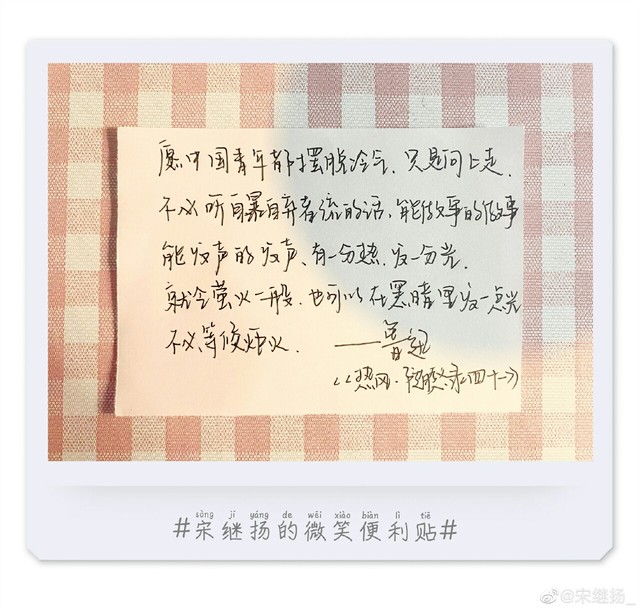 愿中国青年都摆脱冷气、只是向上走.
不必听自暴自弃者流的话、能做事的做事
能发声的发声、有一分热.发一分光.
就令萤火一般.也可以在黑暗里发一点光
不必等候炬火. ——鲁迅
《热风·随感录四十一》
sòng jì yáng de wēi xiào biàn lì tiē
#宋继扬的微笑便利贴#
@宋继扬_